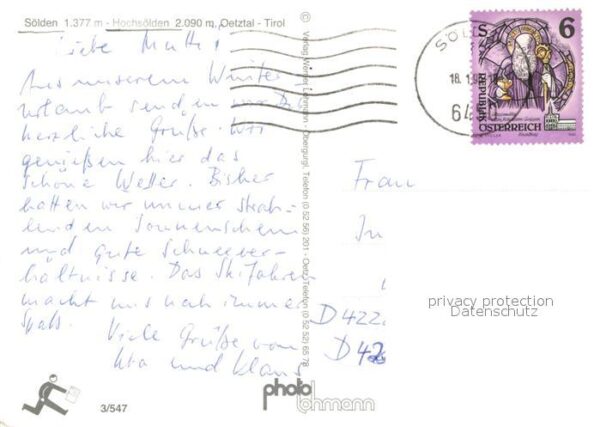 Sölden 1.377 m - Hochsölden 2.090 m, Oetztal - Tirol
Liebe
Aus unserem Winter
urlaub senden wir Dir
herzliche Grüße. Wir
genießen hier das
schöne Wetter. Bisher
hatten wir immer strah-
lenden Sonnenschein
und gute Schneever-
hältnisse. Das Skifahren
macht uns noch immer
Spaß.
Viele Grüße von
Uta und Klaus
3/547
© Verlag Werner Lohmann - Obergurgl, Telefon (0 52 56) 201 - Oetz, Telefon (0 52 52) 65 78
photo
lohmann
SÖL
18. 1.
64
S 6
REPUBLIK
ÖSTERREICH
Frau
In
D 422
D 42
privacy protection
Datenschutz